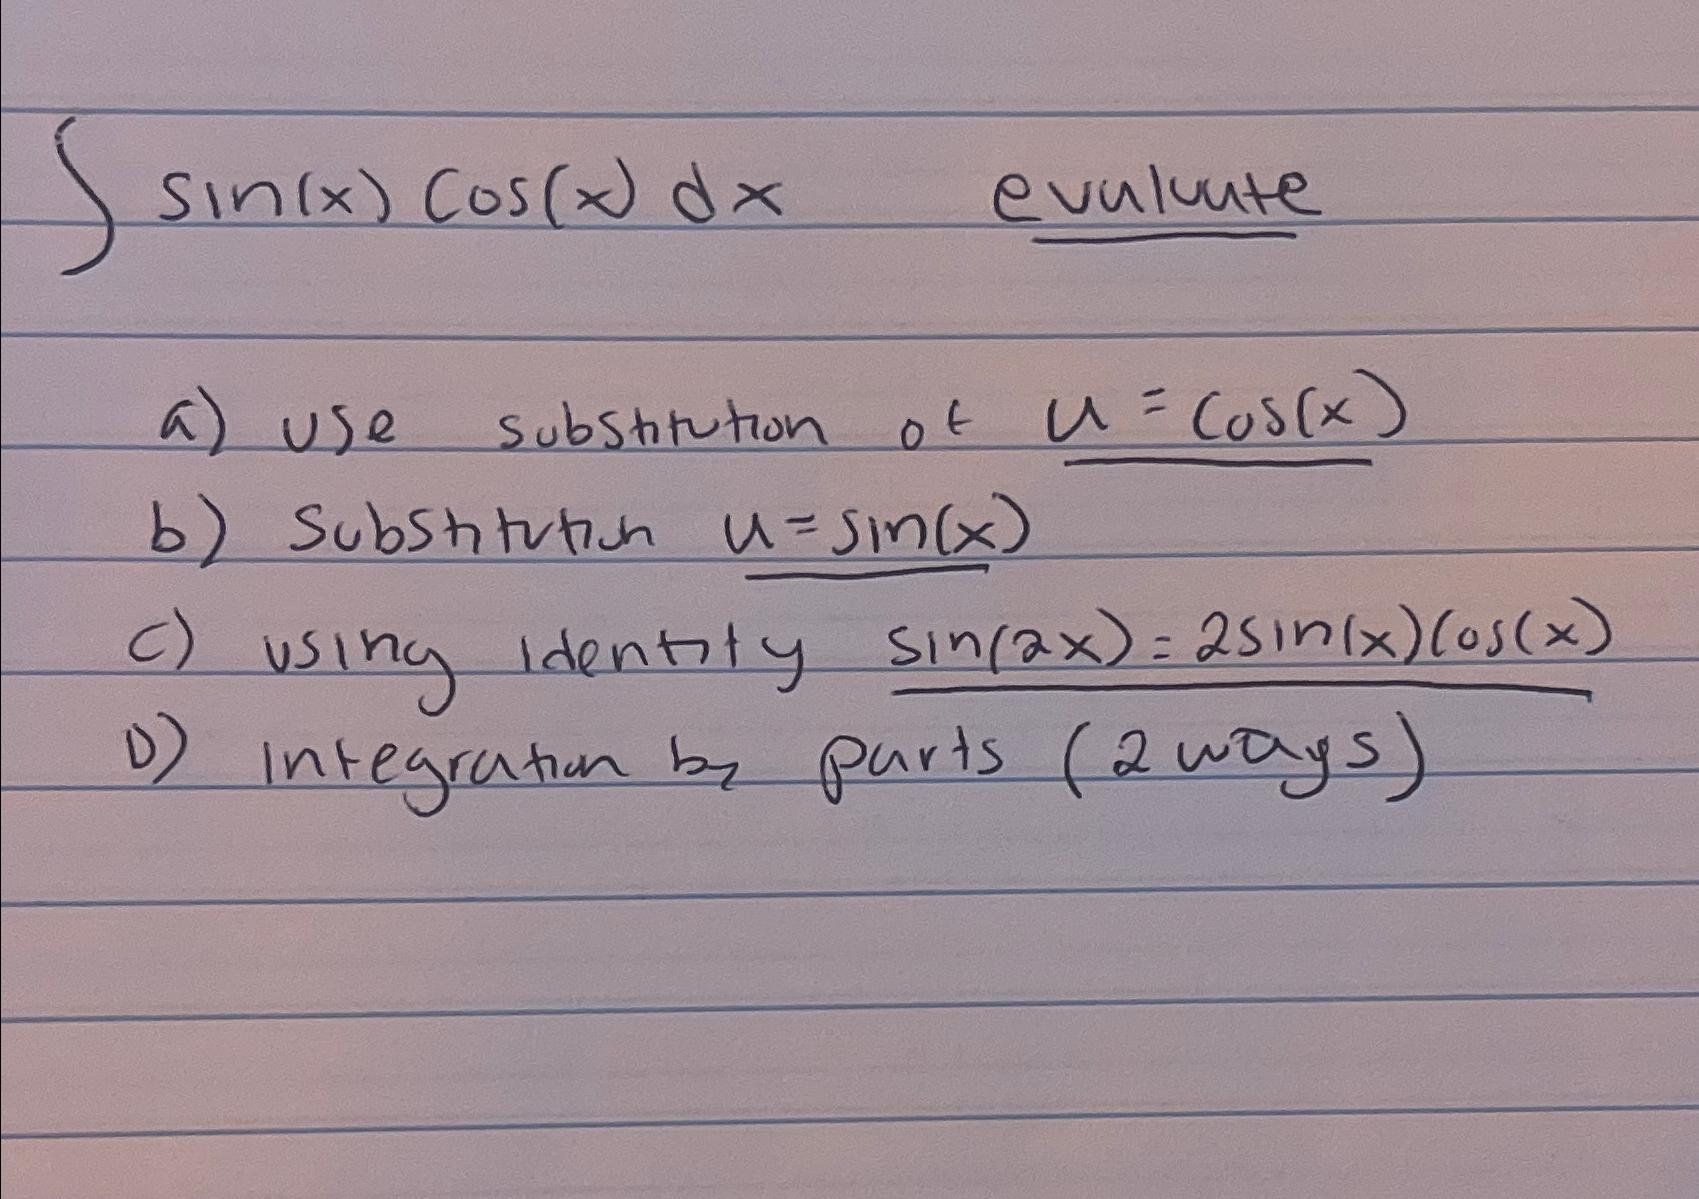 ∫ sin(x) cos(x) dx evaluate
a) use substitution of u = cos(x)
b) substitution u = sin(x)
c) using identity sin(2x) = 2sin(x)cos(x)
D) integration by parts (2 ways)